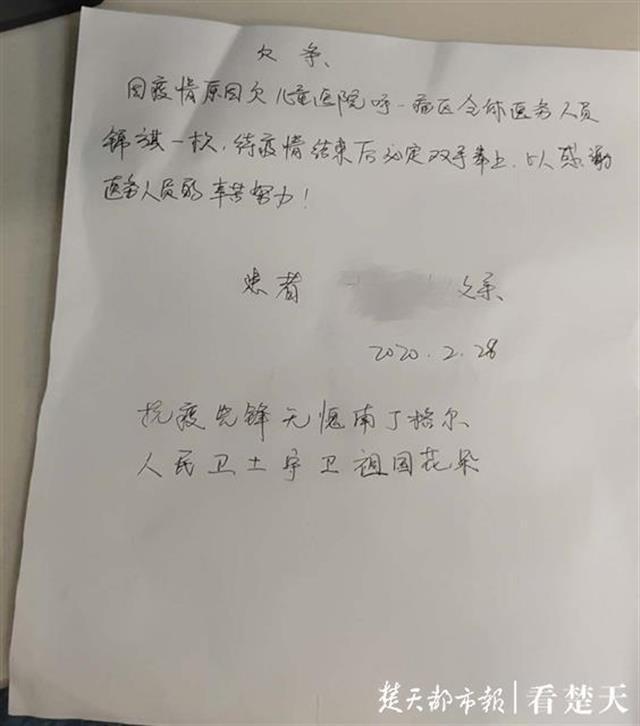 欠条
因疫情原因欠儿童医院呼一病区全体医务人员
锦旗一枚，待疫情结束后必定双手奉上，以感谢
医务人员的辛苦努力！
患者 父亲
2020.2.28
抗疫先锋无愧南丁格尔
人民卫士守卫祖国花朵
楚天都市報|看楚天